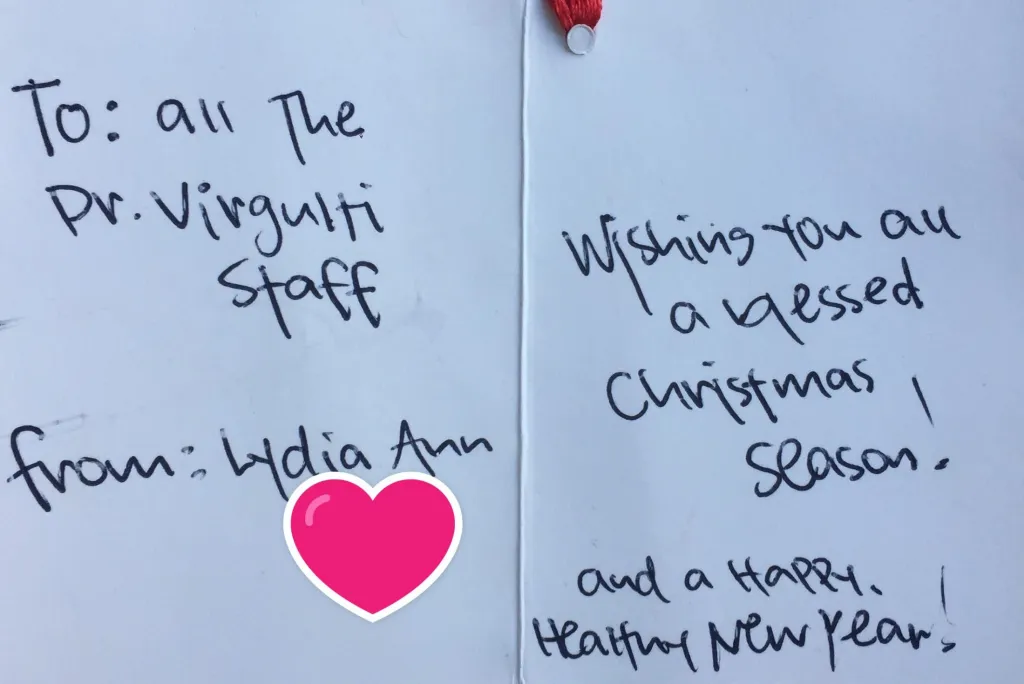 To: all The
Dr. Virgulti
Staff
from: Lydia Ann
Wishing you all
a blessed
Christmas
season!
and a Happy,
Healthy New Year!